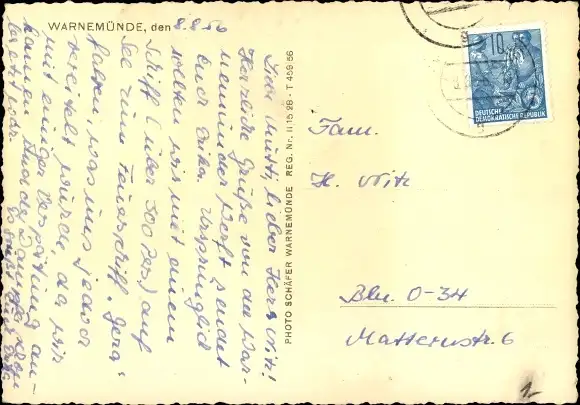 WARNEMÜNDE, den 8.8.56
Gute Mutti, lieber Herr Witz!
Herzliche Grüße von der War-
nemünder Werft sendet
Euer Erika. Ursprünglich
sollten wir mit einem
Schiff (über 300 Pers.) auf
See zum Feuerschiff. Gang
fahren, was uns jedoch
vereitelt wurde, da wir
mit einiger Verspätung an-
kamen. der Dampfer
PHOTO SCHÄFER WARNEMÜNDE REG. Nr. II 15 28 - T 459 56
10
DEUTSCHE
DEMOKRATISCHE REPUBLIK
Fam.
H. Witz
Bln. O-34
Matternstr. 6